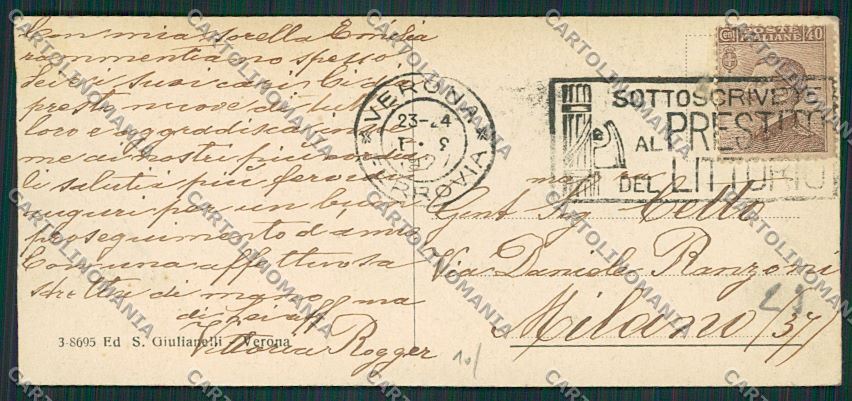 Con mia sorella Emilia
rammentiamo spesso
Lei ed i suoi cari. Ci è
loro e aggradisca in
me di nostri più
li saluti più fervidi
auguri per un buon
proseguimento d'anno
Con una affettuosa
stretta di mano, ma
di Lei aff
Vittoria Rogger
3-8695 Ed S. Giulianelli - Verona
VERONA
23-24
FERROVIA
SOTTOSCRIVETE
AL PRESTITO
DEL LITTORIO
POSTE
ITALIANE
40
Gent Sig. Cette
Via Daniele Ranzoni
Milano (37)
10/
CARTOLINOMANIA